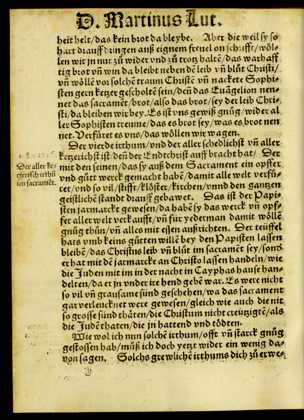 D. Martinus Lut.
heit helt/das kein brot da bleybe. Aber die weil sy so
hart drauff dringen auß eignem freuel on schrifft/wöl-
len wir jn nur zů wider vnd zů trotz halté/das warhaff-
tig brot vñ wein da bleibt neben dē leib vñ blůt Christi/
vñ wölle vor solche traum Christē vñ nackete Sophi-
sten gern ketzer gescholtē sein/deñ das Euāgelion nen-
net das sacramēt/brot/also das brot/sey der leib Chri-
sti/da bleiben wir bey. Es ist vns gewiß gnůg/wider al
ler Sophisten treume/das es brot sey/was es brot nen
net. Verfüret es vns/das wöllen wir wagen.
Der vierde irthum/vnd der aller schedlichst vñ aller
ketzerischst ist/den der Endtchrist auff bracht hat/ Der
mit den seinen/das sy auß dem Sacrament ein opffer
vnd gůt werck gemacht habē/damit alle welt verfü-
ret/vnd so vil/stifft/klöster/kirchen/vnnd den gantzen
geistlichē stande drauff gebawet. Das ist der Papi-
sten jarmarckt gewesen/da habē sy das werck vñ opf-
fer aller welt verkaufft/vñ für yederman damit wölle
gnůg thůn/vñ alles mit essen außrichten. Der teuffel
hats vmb keins gůtten wille bey den Papisten lassen
bleibē/das Christus leib vñ blůt im sacramēt sey/sond
er hat mit dē jarmarckt an Christo lassen handeln/wie
die Juden mit im in der nacht in Cayphas hause han-
delten/da er jn vnder ire hend gebē war. Es were nicht
so vil vñ grausame sünd geschehen/wa das sacrament
gar verleucknet were gewesen/gleich wie auch die nit
so grosse sünd thåten/die Christum nicht creützigtē/als
die Judē thåten/die jn hattend vnd tödten.
Wie wol ich nun solchē irthum/offt vñ starck gnůg
gestossen hab/můß ich doch yetzt wider ein wenig da-
von sagen. Solchs grewlichē irthums dich zů erwe-
Der aller ke
tzerisch irthū
im sacramēt.